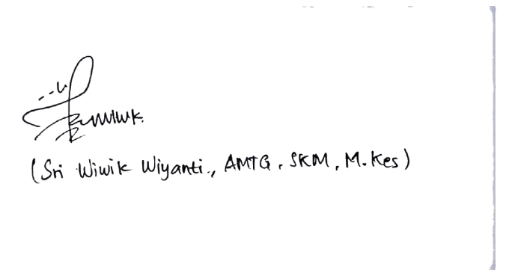 (Sri Wiwik Wiyanti., AMTG, SKM, M.Kes)